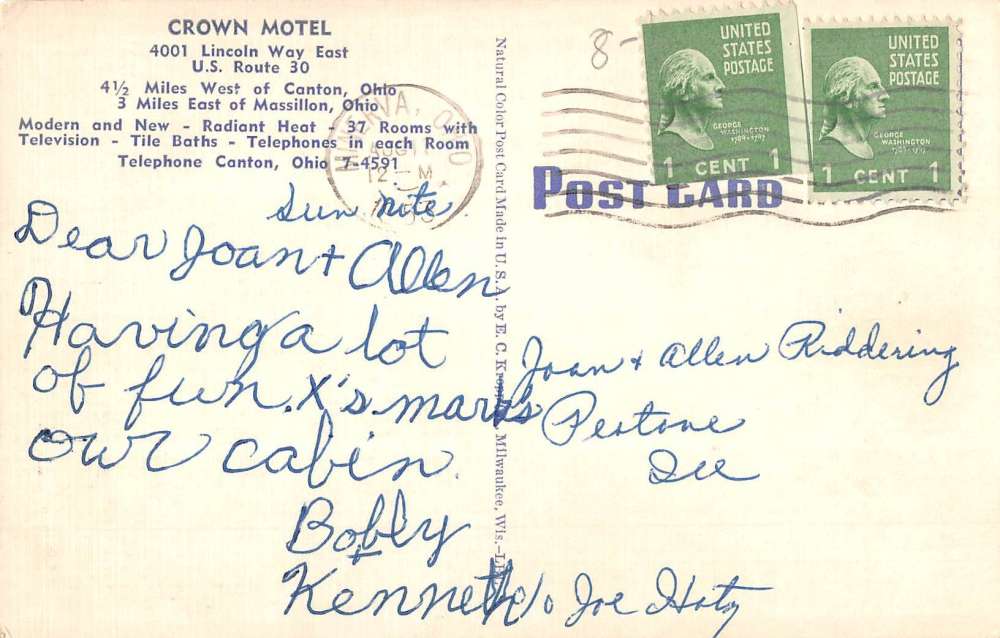 CROWN MOTEL
4001 Lincoln Way East
U.S. Route 30
4½ Miles West of Canton, Ohio
3 Miles East of Massillon, Ohio
Modern and New - Radiant Heat - 37 Rooms with
Television - Tile Baths - Telephones in each Room
Telephone Canton, Ohio 7-4591
MINERVA, O
AUG
12 M
Sun nite
Dear Joan + Allen
Having a lot
of fun. X's marks
our cabin.
Bobby
+
Kenneth
Natural Color Post Card Made in U.S.A. by E. C. Milwaukee, Wis.
8-
UNITED
STATES
POSTAGE
GEORGE
WASHINGTON
1789-1797
1 CENT 1
UNITED
STATES
POSTAGE
GEORGE
WASHINGTON
1789-1797
1 CENT 1
POST CARD
Joan + Allen Riddering
Peotone
Ill
c/o Joe Hotz